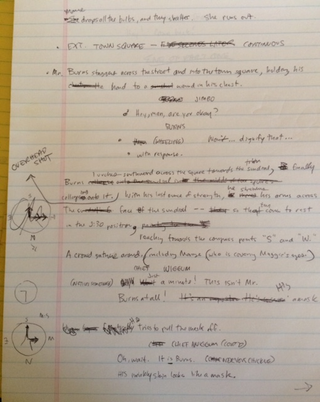 She drops all the bulbs, and they shatter. She runs out.
• EXT. TOWN SQUARE — CONTINUOUS
• Mr. Burns staggers across the street and into the town square, holding his
hand to a wound in his chest.
JIMBO
Hey man, are you okay?
BURNS
(WHEEZING) Won't... dignify that...
with response.
OVERHEAD SHOT
across the square towards the sundial, Finally
Burns
collapses onto it. With his last ounce of strength, he his arms across
The face of the sundial -- so that they come to rest
in the 2:30 position,
reaching towards the compass points "S" and "W."
A crowd gathers around (including Marge (who is covering Maggie's eyes)
CHIEF WIGGUM
Just a minute! This isn't Mr.
Burns at all! It's a mask
7
tries to pull the mask off.
CHIEF WIGGUM (CONT'D)
Oh, wait. It is Burns.
His wrinkly skin looks like a mask.
3
M
3
N